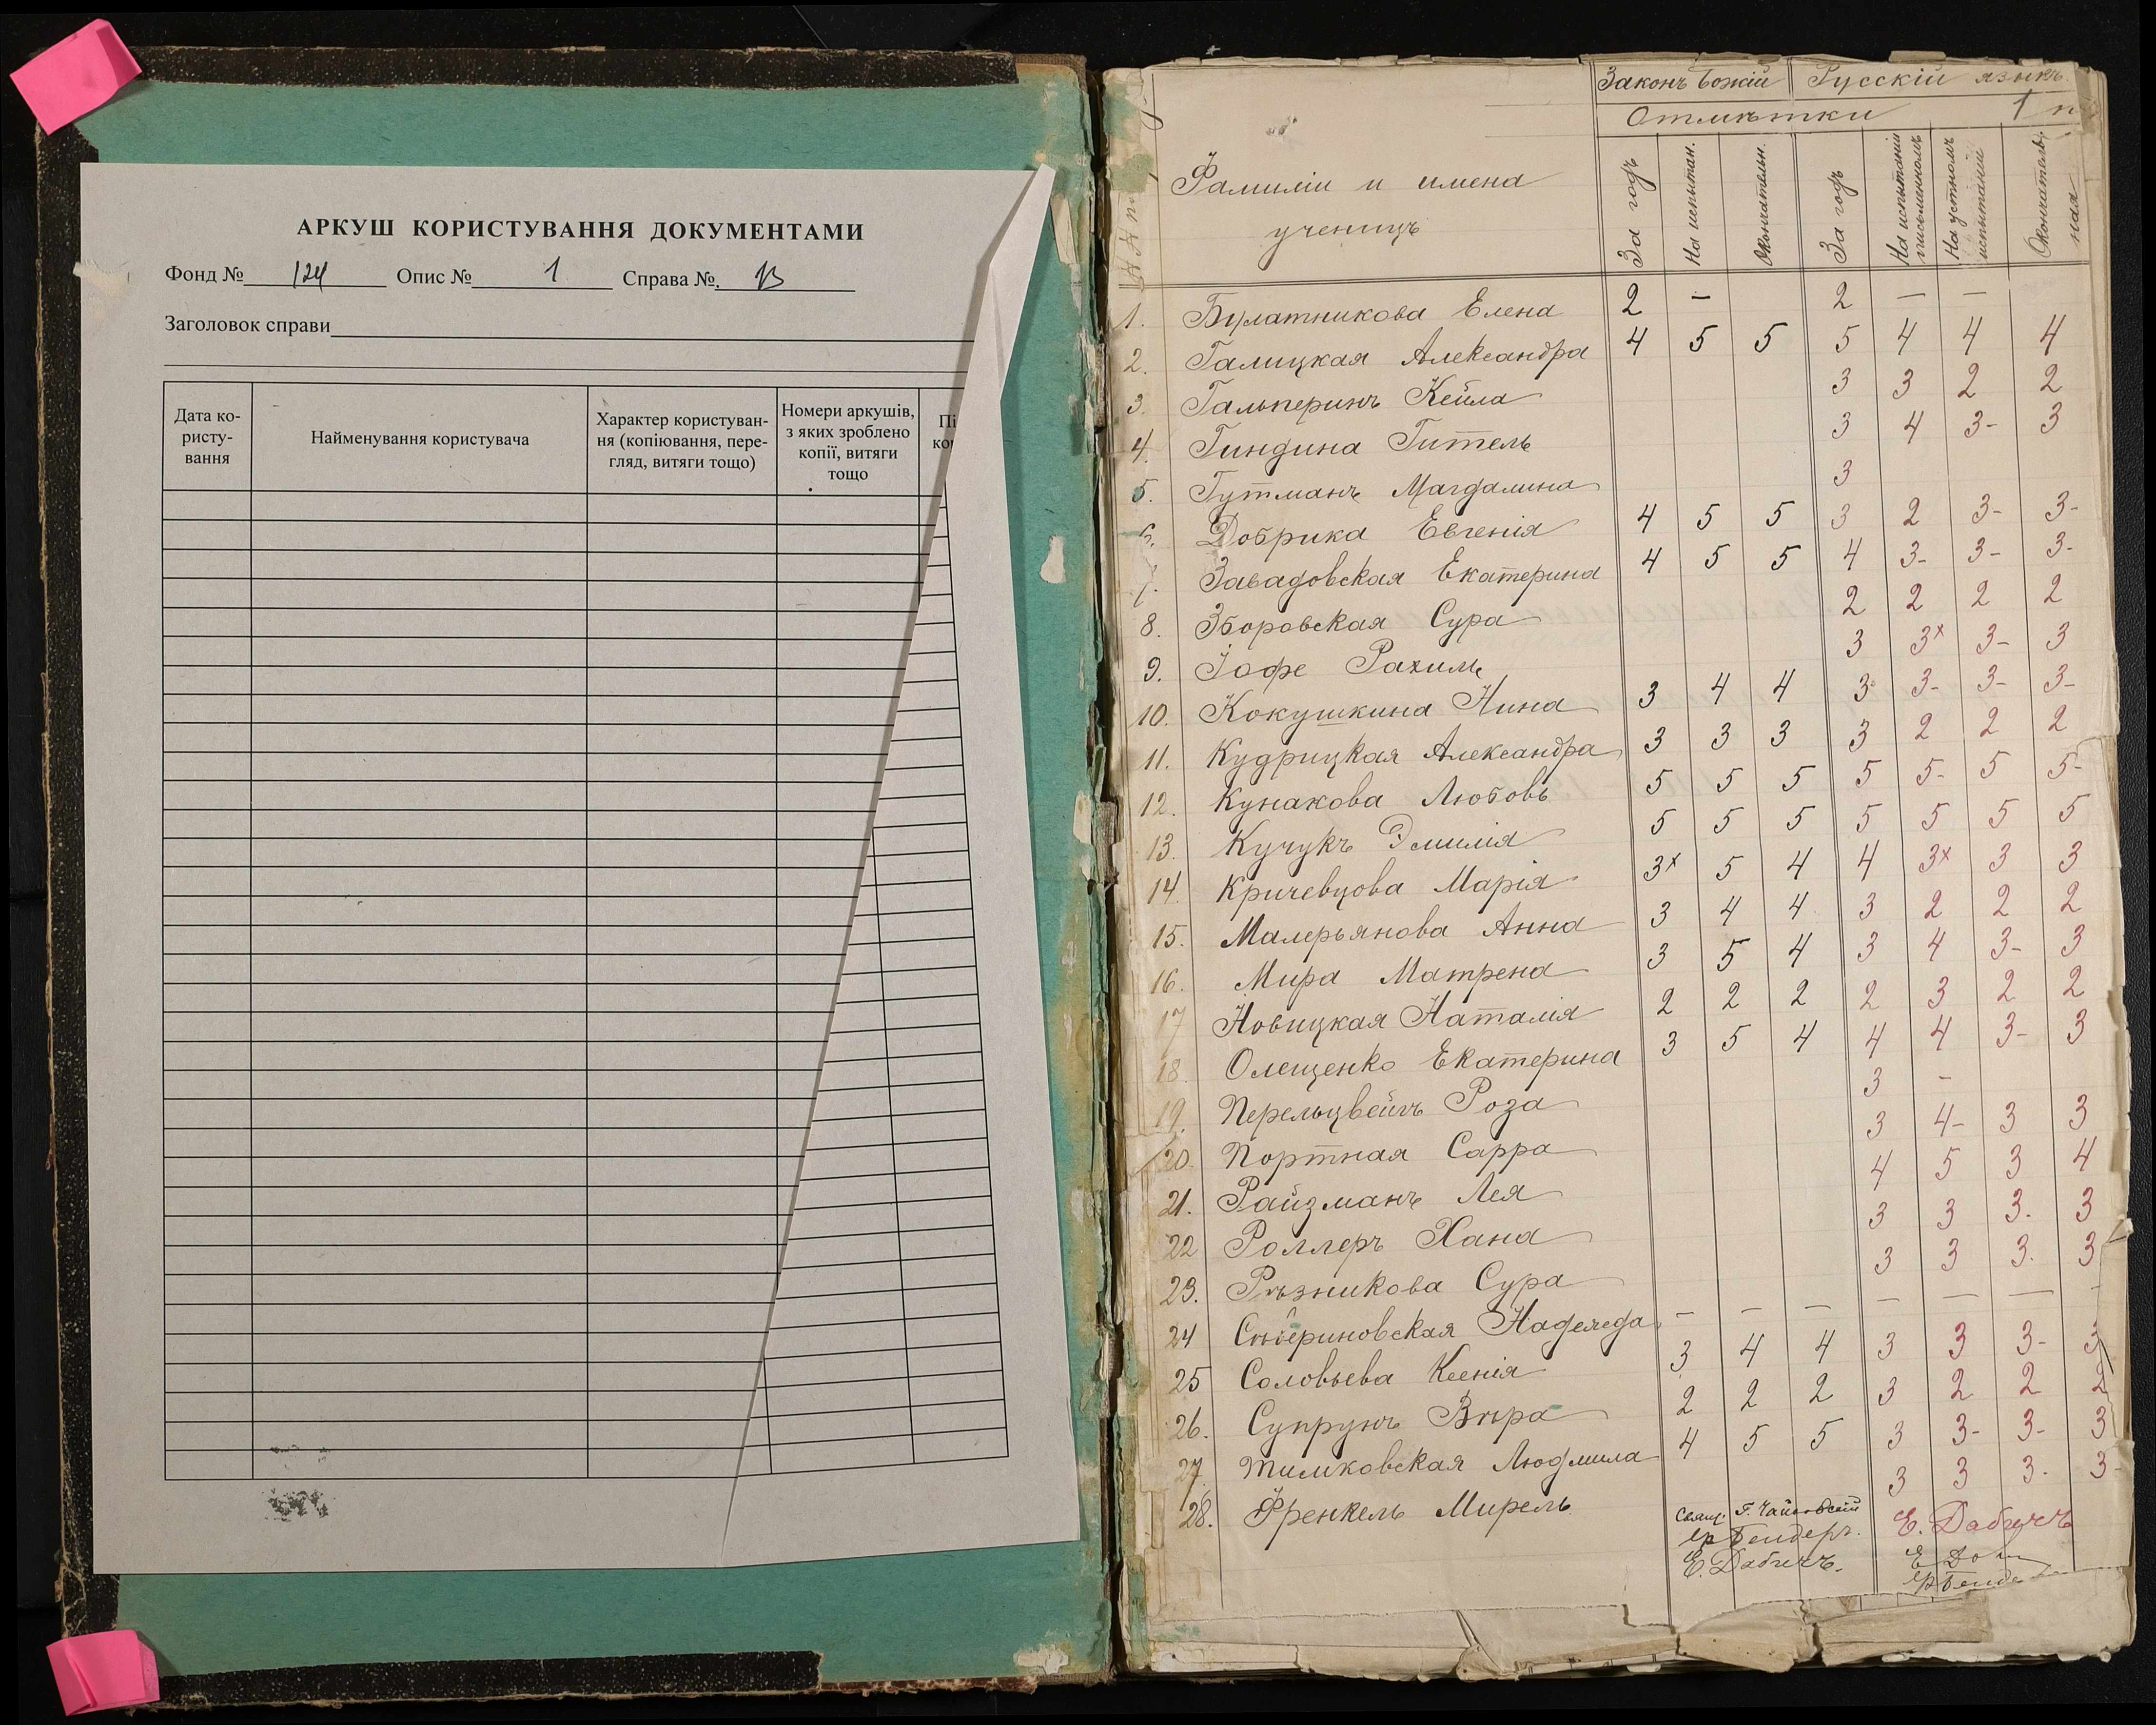 АРКУШ КОРИСТУВАННЯ ДОКУМЕНТАМИ
Фонд № 124 Опис № 1 Справа № 13
Заголовок справи
Дата ко-
ристу-
вання
Найменування користувача
Характер користуван-
ня (копіювання, пере-
гляд, витяги тощо)
Номери аркушів,
з яких зроблено
копії, витяги
тощо
Пі
ко
Законъ Божій Русскій языкъ
Отмѣтки 1
Фамиліи и имена
ученицъ
За годъ
На испытан.
Окончательн.
За годъ
На испытаніи
письменномъ
На устномъ
испытаніи
Окончатель-
ная
1. Булатникова Елена 2 — 2 — —
2. Галицкая Александра 4 5 5 5 4 4 4
3. Гальперинъ Кейла 3 3 2 2
4. Гиндина Гитель 3 4 3- 3
5. Гутманъ Магдалина 3
6. Добрика Евгенія 4 5 5 3 2 3- 3-
7. Завадовская Екатерина 4 5 5 4 3- 3- 3-
8. Зборовская Сура 2 2 2 2
9. Іофе Рахиль 3 3x 3- 3
10. Кокушкина Нина 3 4 4 3- 3- 3- 3-
11. Кудрицкая Александра 3 3 3 3 2 2 2
12. Кунакова Любовь 5 5 5 5 5- 5 5-
13. Кучукъ Эмилія 5 5 5 5 5 5 5
14. Кричевцова Марія 3x 5 4 4 3x 3 3
15. Малерьянова Анна 3 4 4 3 2 2 2
16. Мира Матрена 3 5 4 3 4 3- 3
17 Новицкая Наталія 2 2 2 2 3 2 2
18. Олещенко Екатерина 3 5 4 4 4 3- 3
19. Перельцвейгъ Роза 3 -
20. Портная Сарра 3 4- 3 3
21. Райзманъ Лея 4 5 3 4
22 Роллеръ Хана 3 3 3. 3
23. Рѣзникова Сура 3 3 3. 3
24 Сѣвериновская Надежда — — — — — — -
25 Соловьева Ксенія 3 4 4 3 3 3- 3
26. Супрунъ Вѣра 2 2 2 3 2 2 2
27. Тимковская Людмила 4 5 5 3 3- 3- 3
28. Френкель Мирель 3 3 3- 3-
Свящ. Г. Чайковскій
Бендеръ.
Е. Дабичъ.
Е. Дабичъ